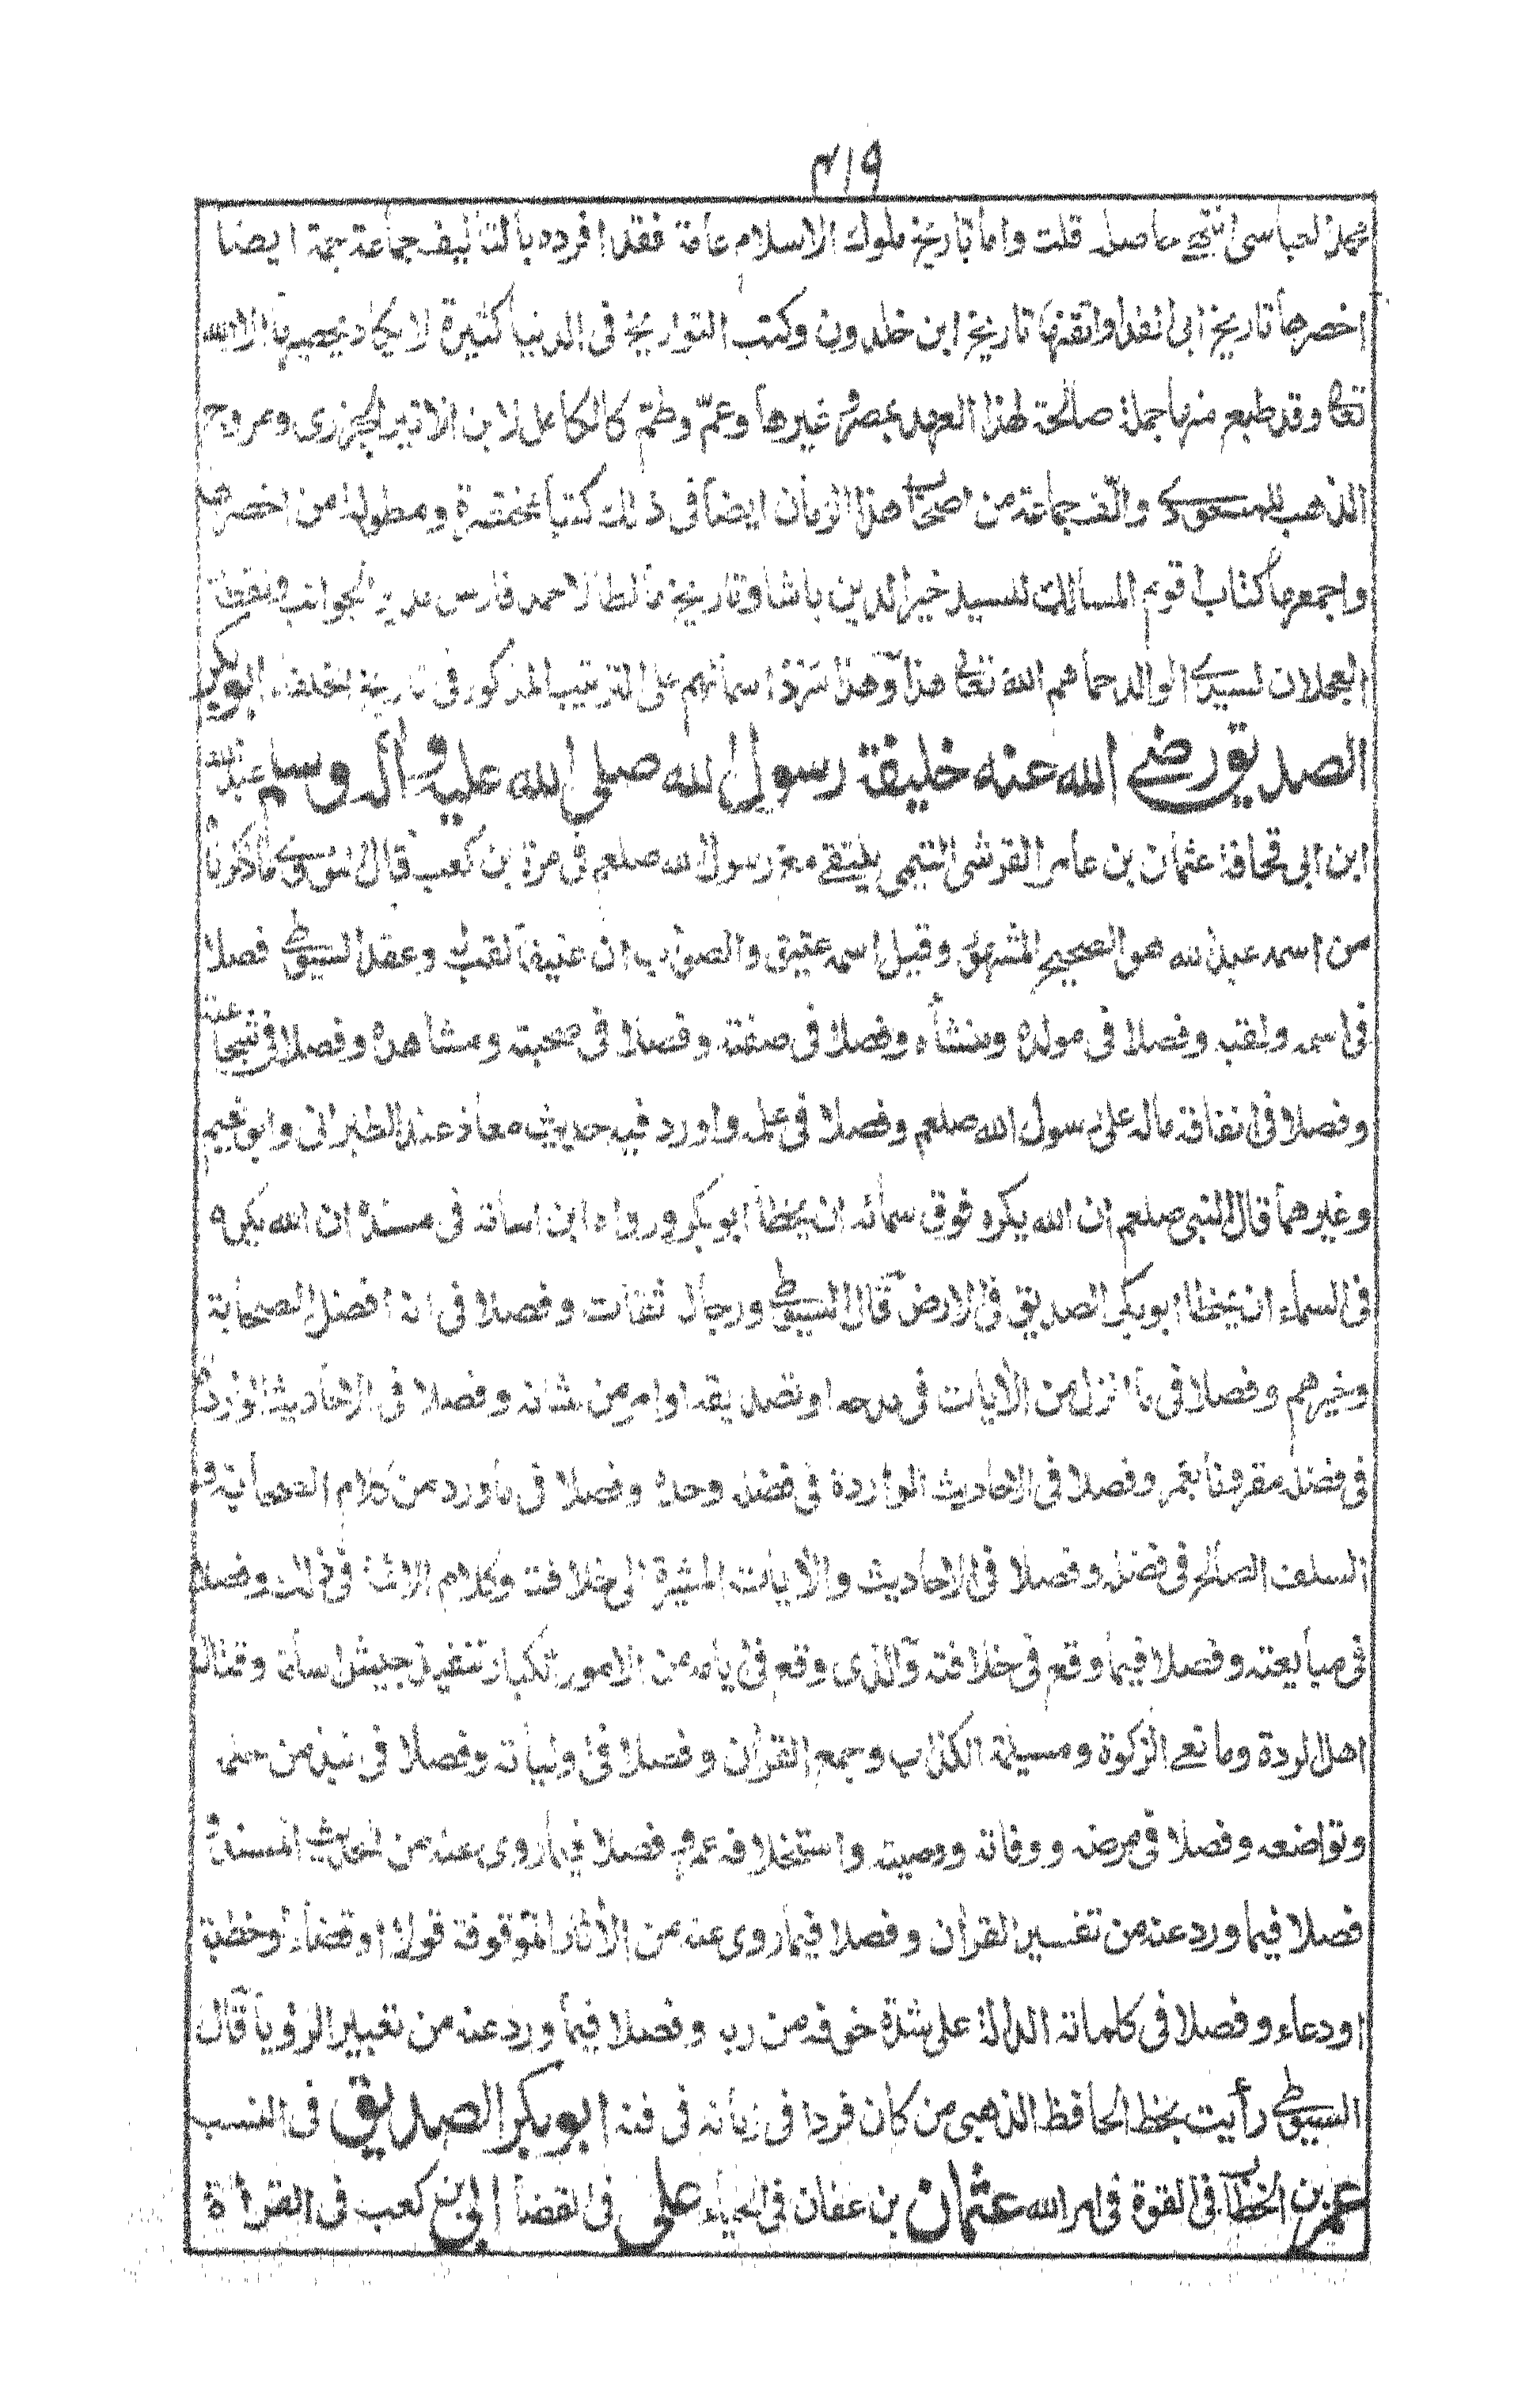 ۴۱۹
محمد العباسی انتهى حاصله قلت واما تاريخ ملوك الاسلام عامة فقد افرده بالتأليف جماعة جمة ايضا
اخصرها تاريخ ابى الفدا واتقنها تاريخ ابن خلدون وكتب التواريخ فى الدنيا كثيرة لا يكاد يحصيها الا الله
تعالى وقد طبع منها جملة صالحة لهذا العهد بمصر وغيرها وعمّ وطمّ كالكامل لابن الاثير الجزرى ومروج
الذهب للمسعودى والّف جماعة من اصحاب هذا الزمان ايضا فى ذلك كتبا مختصرة ومطولة من اخصرها
واجمعها كتاب اقوم المسالك للسيد خير الدين باشا وتاريخ مالطا لاحمد فارس مدير الجوائب ولقطة
العجلان لسيدى الوالد حماهم الله تعالى هذا وهذا سرد اسمائهم على الترتيب المذكور فى تاريخ الخلفاء ابوبكر
الصديق رضى الله عنه خليفة رسول الله صلى الله عليه واله وسلم عبد الله
ابن ابى قحافة عثمان بن عامر القرشى التيمى يلتقى مع رسول الله صلعم فى مرة بن كعب قال النووى ما ذكرنا
من اسمه عبد الله هو الصحيح المشهور وقيل اسمه عتيق والصواب ان عتيقا لقب له وعقد السيوطى فصلا
فى اسمه ولقبه وفصلا فى مولده ومنشأه وفصلا فى صفته وفصلا فى صحبته ومشاهده وفصلا فى شجاعته
وفصلا فى انفاقه ماله على رسول الله صلعم وفصلا فى علمه واورد فيه حديث معاذ عند الطبرانى وابو نعيم
وغيرهما قال النبى صلعم ان الله يكره فوق سمائه ان يخطأ ابوبكر ورواه ابن اسامة فى مسنده ان الله يكره
فى السماء ان يخطا ابوبكر الصديق فى الارض قال السيوطى ورجاله ثقات وفصلا فى انه افضل الصحابة
وخيرهم وفصلا فى ما انزل من الايات فى مدحه او تصديقه او امر من شانه وفصلا فى الاحاديث الواردة
فى فضله مقرونا بعمر وفصلا فى الاحاديث الواردة فى فضله وحده وفصلا فى ما ورد من كلام الصحابة و
السلف الصالح فى فضله وفصلا فى الاحاديث والايات المشيرة الى خلافته وكلام الائمة فى ذلك وفصلا
فى مبايعته وفصلا فيما وقع فى خلافته والذى وقع فى ايامه من الامور الكبار تنفيذ جيش اسامة وقتال
اهل الردة ومانعى الزكوة ومسيلمة الكذاب وجمع القران وفصلا فى اولياته وفصلا فى نبذ من حلمه
وتواضعه وفصلا فى مرضه ووفاته ووصيته واستخلافه عمر وفصلا فيما روى عنه من الحديث المسند و
فصلا فيما ورد عنه من تفسير القران وفصلا فيما روى عنه من الأثار الموقوفة قولا او قضاء او خطبة
او دعاء وفصلا فى كلماته الدالة على شدة خوفه من ربه وفصلا فيما ورد عنه من تعبير الرؤيا قال
السيوطى رأيت بخط الحافظ الذهبى من كان فردا فى زمانه فى فنه ابوبكر الصديق فى النسب
عمر بن الخطاب فى القوة فى امر الله عثمان بن عفان فى الحياء على فى القضا ابى بن كعب فى القراة